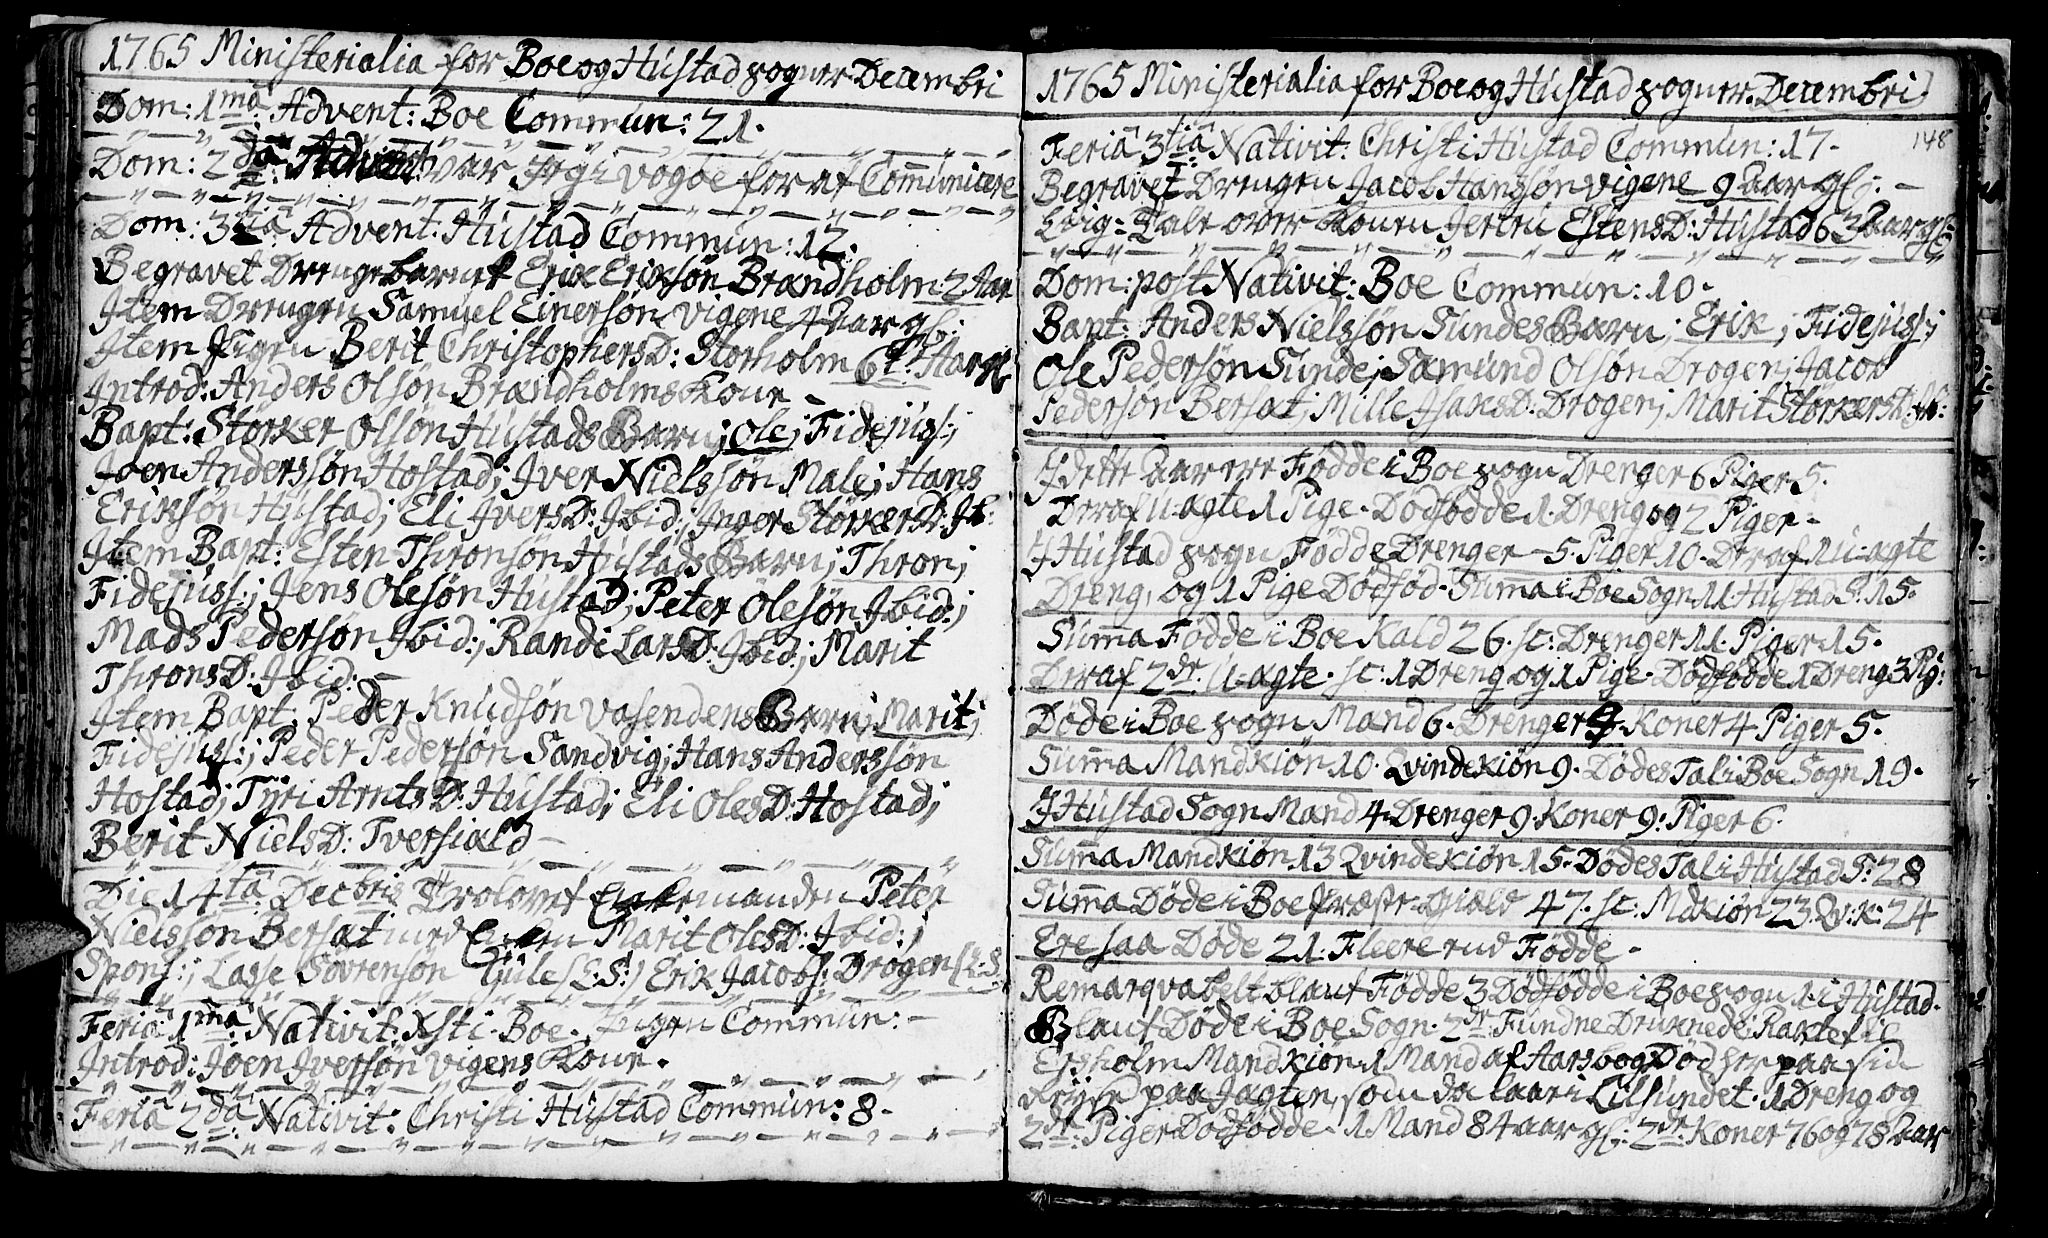 1765 Ministerialia for Boe og Hústad sogner Decembri
Dom: 1mâ Advent: Boe Commún: 21.
Dom: 2dâ Advent var Jeg i vogöe for at Com̄unicere
Dom: 3tiâ Advent: Hústad Commún: 12.
Begravet Drengebarnet Erik Eriksön Brandholm 2 Aar
Item Drengen Samúel Einersön Vigene 4 aar gl:
Item Pigen Berit ChristophersD: Storholm 6 t: Aar gl
Introd: Anders Olsön Brandholms Kone –
Bapt: Störker Olsön Hústads Barn; Ole; Fidejúss:;
Joen Anderssön Hostad; Iver Nielssön Male; Hans
Eriksön Hústad; Eli IversD: Ibid:; Inger StörkersD: Ib:
Item Bapt: Esten Thronsön Hústads Barn; Thron;
Fidejúss:; Jens Olesön Hústad; Peter Olesön Ibid:;
Mads Pedersön Ibid:; Randi LarsD: Ibid:; Marit
ThronsD: Ibid: –
Item Bapt: Peder Knúdsön Vasendens Barn; Marit;
Fidejúss:; Peder Pedersön Sandvig; Hans Anderssön
Hostad; Tyri ArntsD: Hústad; Eli OlesD: Hostad;
Berit NielsD: Tversiald –
Die 14tâ Decbris Trolovet Enkemanden Peter
Nielssön Bersat med Enken Marit OlesD: Ibid:;
Spons:; Lasse Sövrensön Gúle (L:S:) Erik Jacobs: Drogen (L:S
Feriâ 1mâ Nativit: Xsti Boe. Ingen Commún: –
Introd: Joen Iversön Vigens Kone.
Feriâ 2dâ Nativit: Christi Hústad Commún: 8.
1765 Ministerialia for Boe og Hústad sogner. Decembri
148
Feriâ 3tiâ Nativit: Christi Hústad Commún: 17.
Begravet Drengen Jacob Hanssön Vigene 9 Aar gl: –
Liig-Tale over Konen Jertrú EstensD: Hústad 63 Aar gl:
Dom: post Nativit: Boe Commún: 10.
Bapt: Anders Nielssön Súndes Barn; Erik; Fidejúss:;
Ole Pedersön Súnde; Samúnd Olsön Drogen; Jacob
Pedersön Bersat; Mille IsaksD: Drogen; Marit StörkersD:
I dette Aar ere Födde i Boe sogn Drenger 6 Piger 5.
Deraf ú-ægte 1 Pige. Dödfödde 1 Dreng og 2 Piger –
I Hústad sogn Födde Drenger 5. Piger 10. Deraf 1 ú-ægte
Dreng, og 1 Pige Dödföd. Súm̄a i Boe Sogn 11 Hústad S: 15.
Súm̄a Födde i Boe Kald 26. sc: Drenger 11. Piger 15.
Deraf 2de: ú-ægte. sc: 1 Dreng og 1 Pige. Dödfödde 1 Dreng 3 Pig:
Döde i Boe sogn Mand 6. Drenger 4. Koner 4 Piger 5.
Súm̄a Mandkiön 10. Qvindekiön 9. Dödes Tal i Boe Sogn 19.
I Hústad Sogn Mand 4. Drenger 9. Koner 9. Piger 6.
Súm̄a Mandkiön 13 Qvindekiön 15. Dödes Tal i Hústad S: 28
Súm̄a Döde i Boe Præste-Giæld 47. sc: Mdkiön 23. Qv:K: 24
Ere saa Döde 21. Fleere end Födde –
Remarqvabelt blant Födde 3 Dödfödde i Boe sogn 1. i Hústad.
Blant Döde i Boe Sogn. 2de: Fúndne Drúknede: Raktefil
Ersholm Mandkiön. 1 Mand af Aarsbog Död her paa sin
Reyse paa Jagten, som da laae i Lilsúndet. 1 Dreng og
2de: Piger Dödfödde. 1 Mand 84 aar gl: 2de: Koner 76 og 78 Aar